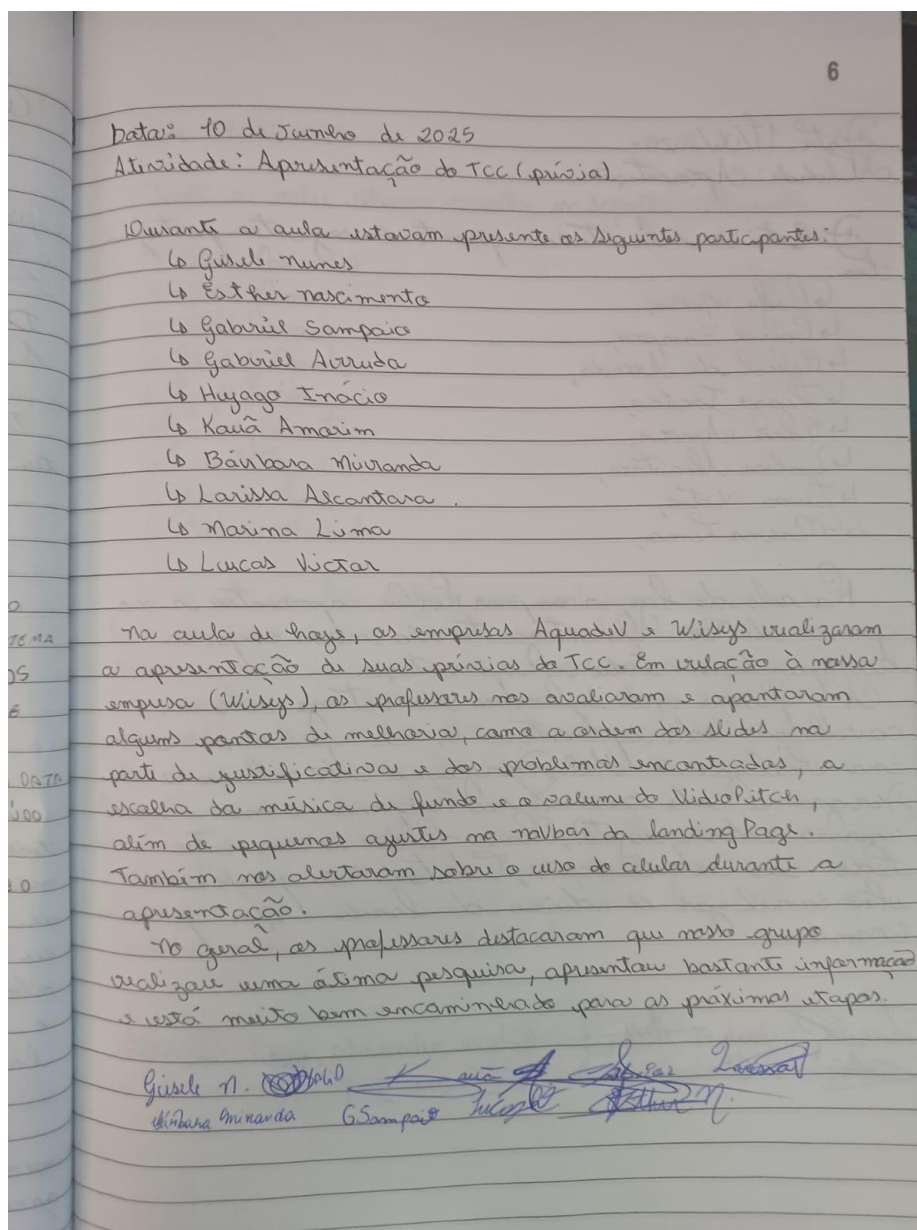 6
Data: 10 de Junho de 2025
Atividade: Apresentação do TCC (prévia)
Durante a aula estavam presente os seguintes participantes:
↳ Gisele nunes
↳ Esther nascimento
↳ Gabriel Sampaio
↳ Gabriel Arruda
↳ Hyago Inácio
↳ Kauã Amorim
↳ Bárbara Miranda
↳ Larissa Alcantara.
↳ Marina Lima
↳ Lucas Victor
TEMA
OS
DATA
Na aula de hoje, as empresas Aquadev e Wisys realizaram
a apresentação de suas prévias do TCC. Em relação à nossa
empresa (Wisys), os professores nos avaliaram e apontaram
alguns pontos de melhoria, como a ordem dos slides na
parte de justificativa e dos problemas encontrados, a
escolha da música de fundo e o volume do VideoPitch,
além de pequenos ajustes na navbar da landing Page.
Também nos alertaram sobre o uso do celular durante a
apresentação.
No geral, os professores destacaram que nosso grupo
realizou uma ótima pesquisa, apresentou bastante informação
e está muito bem encaminhado para as próximas etapas.
Gisele n. Kauã A
Bárbara Miranda G Sampaio Esther N.